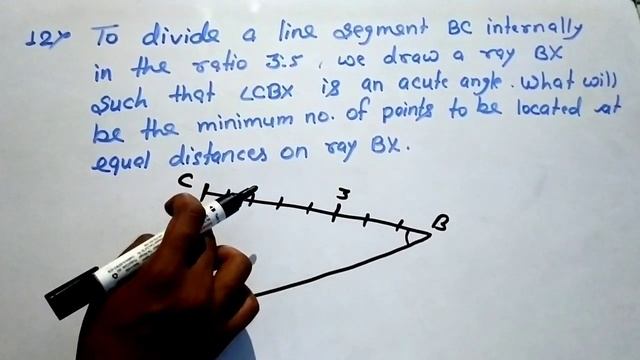 12) To divide a line segment BC internally
in the ratio 3:5, we draw a ray BX
such that ∠CBX is an acute angle. What will
be the minimum no. of points to be located at
equal distances on ray BX.
C
3
B